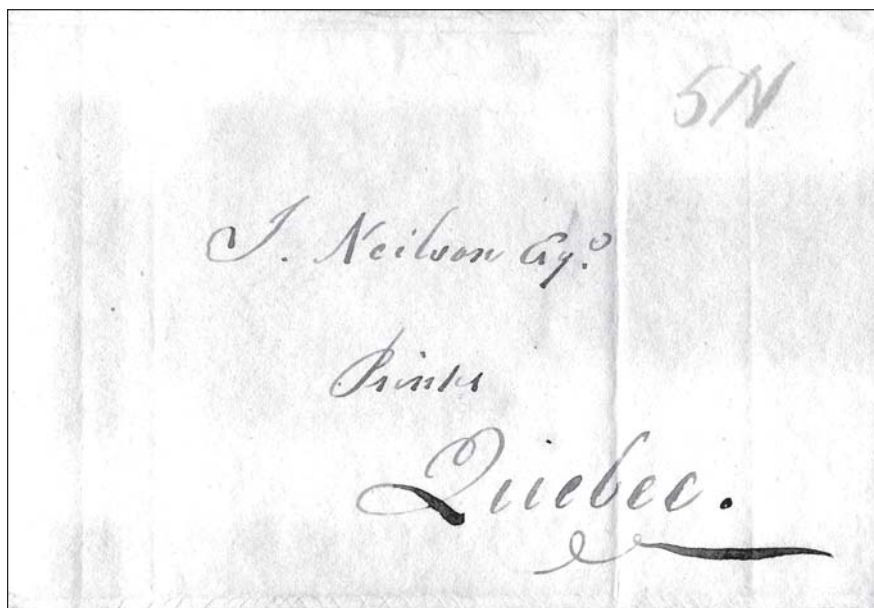 5N
J. Neilson Esqr.
Printer
Quebec.